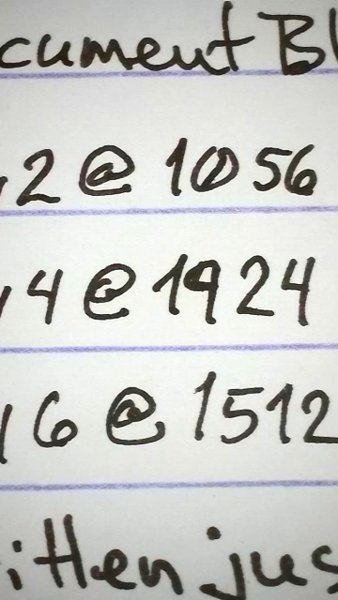 cument Bl
, 2 @ 1056
, 4 @ 1924
, 6 @ 1512
itten jus